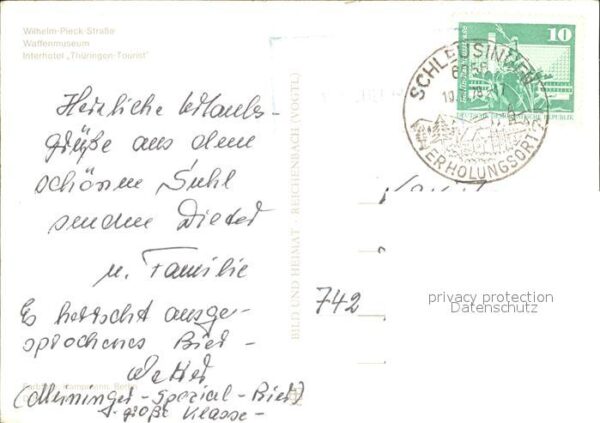 Wilhelm-Pieck-Straße
Waffenmuseum
Interhotel „Thüringen-Tourist"
Herzliche Urlaubs-
grüße aus dem
schönen Suhl
senden Dieter
u. Familie
Es herrscht ausge-
sprochenes Bier-
wetter
(Meininger-Spezial-Bier)
große Klasse-
BILD UND HEIMAT REICHENBACH (VOGTL)
10
DEUTSCHE DEMOKRATISCHE REPUBLIK
SCHLEUSINGEN
ERHOLUNGSORT
742
privacy protection
Datenschutz